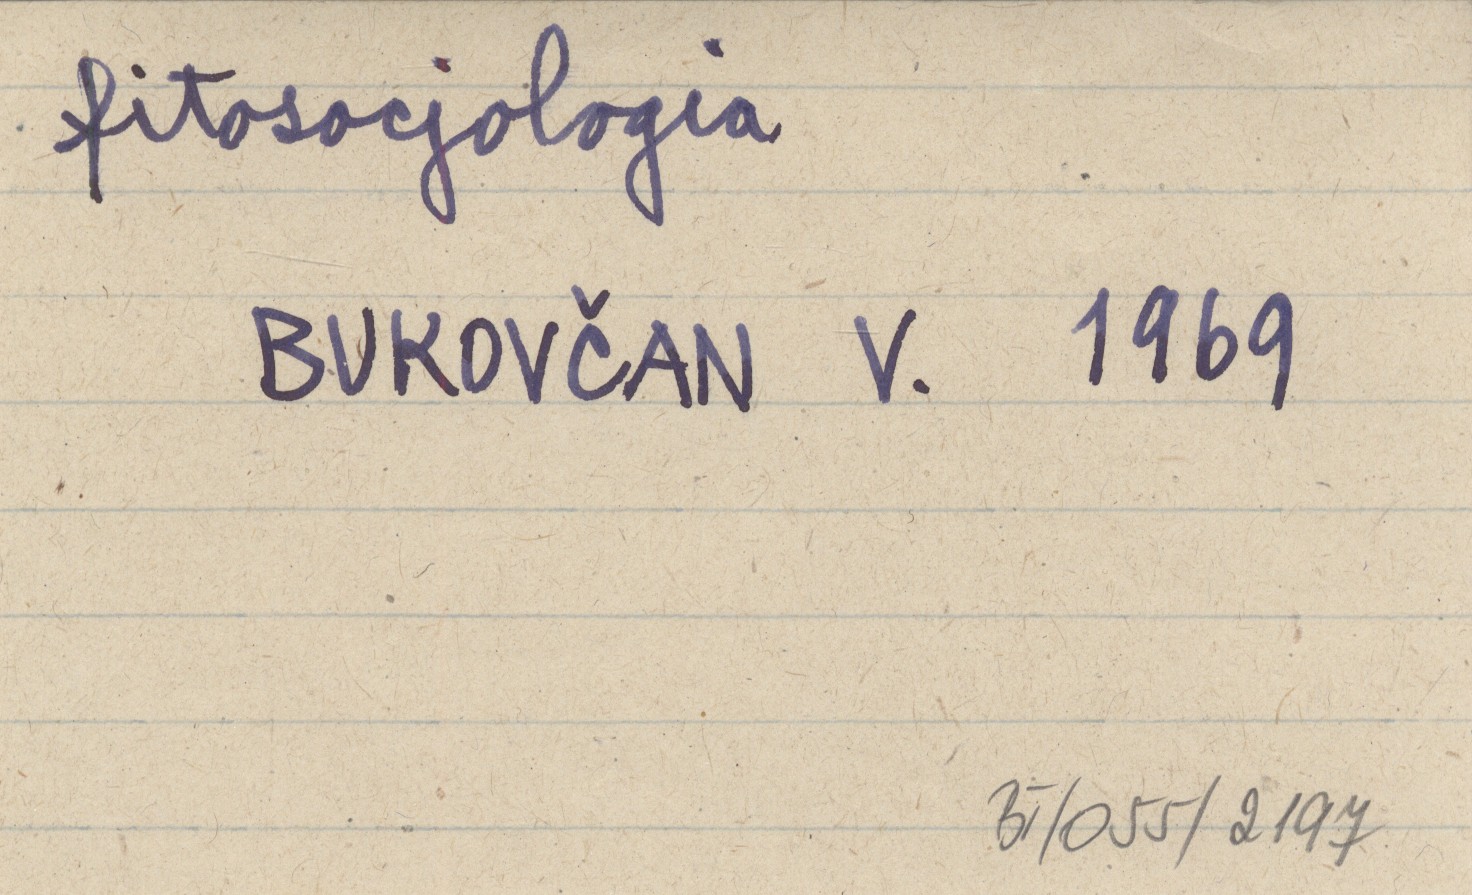 fitosocjologia
BUKOVČAN V. 1969
BI/055/2197